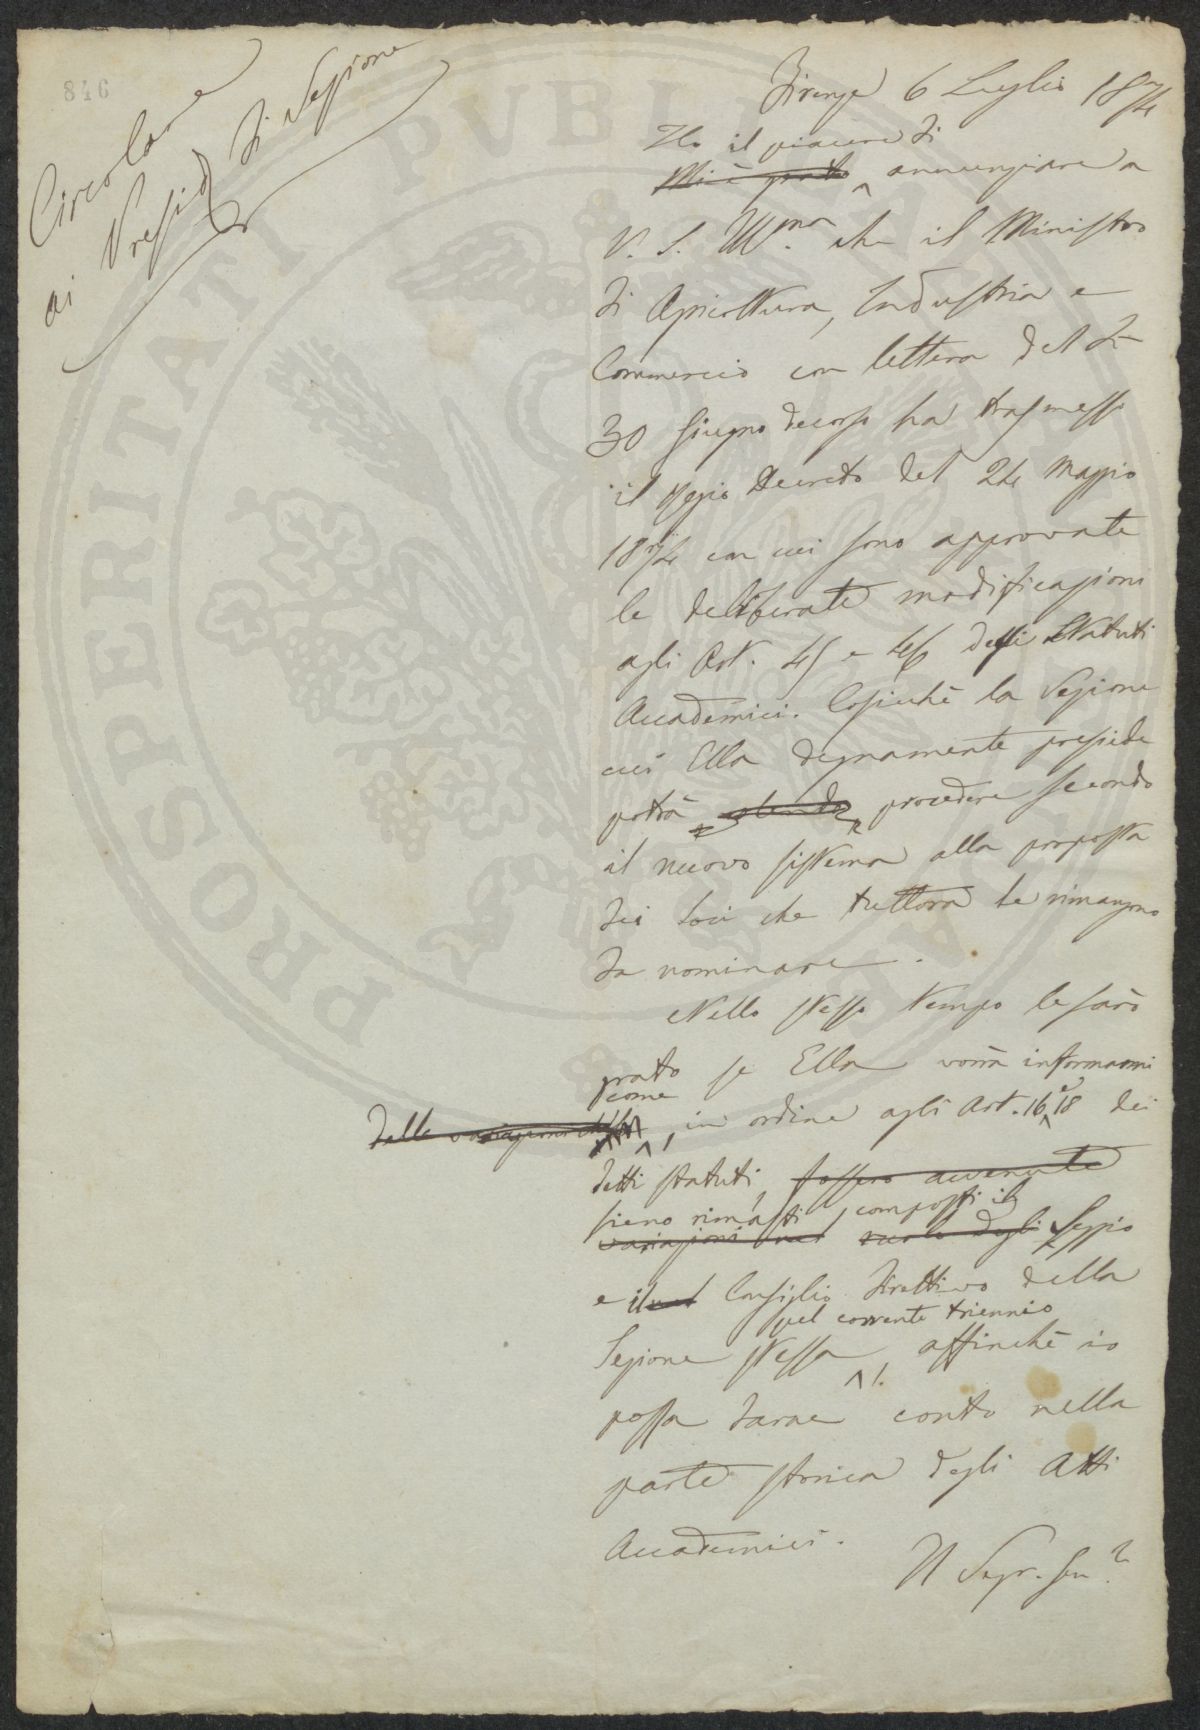 846
Circolare
ai Presidi di Sezione
Firenze 6 Luglio 1874
Ho il piacere di
Mi è grato annunziare a
V. S. Ill.ma che il Ministro
di Agricoltura, Industria e
Commercio con lettera del dì
30 Giugno decorso ha trasmesso
il Regio Decreto del 24 Maggio
1874 con cui sono approvate
le deliberate modificazioni
agli Art. 45 e 46 degli Statuti
Accademici. Cosicchè la Sezione
cui Ella degnamente presiede
potrà volendo procedere secondo
il nuovo sistema alla proposta
dei Soci che tuttora le rimangono
da nominare.
Nello stesso tempo le sarò
grato se Ella vorrà informarmi
come
delle variazioni , in ordine agli Art. 16 e 18 dei
detti statuti, fossero avvenute
sieno rimasti composti il
variazioni nel ruolo degli Seggio
e il nel Consiglio Direttivo della
pel corrente triennio
Sezione stessa, affinchè io
possa darne conto nella
parte storica degli Atti
Accademici.
Il Segr. Gen.e
PROSPERITATI PUBLICAE